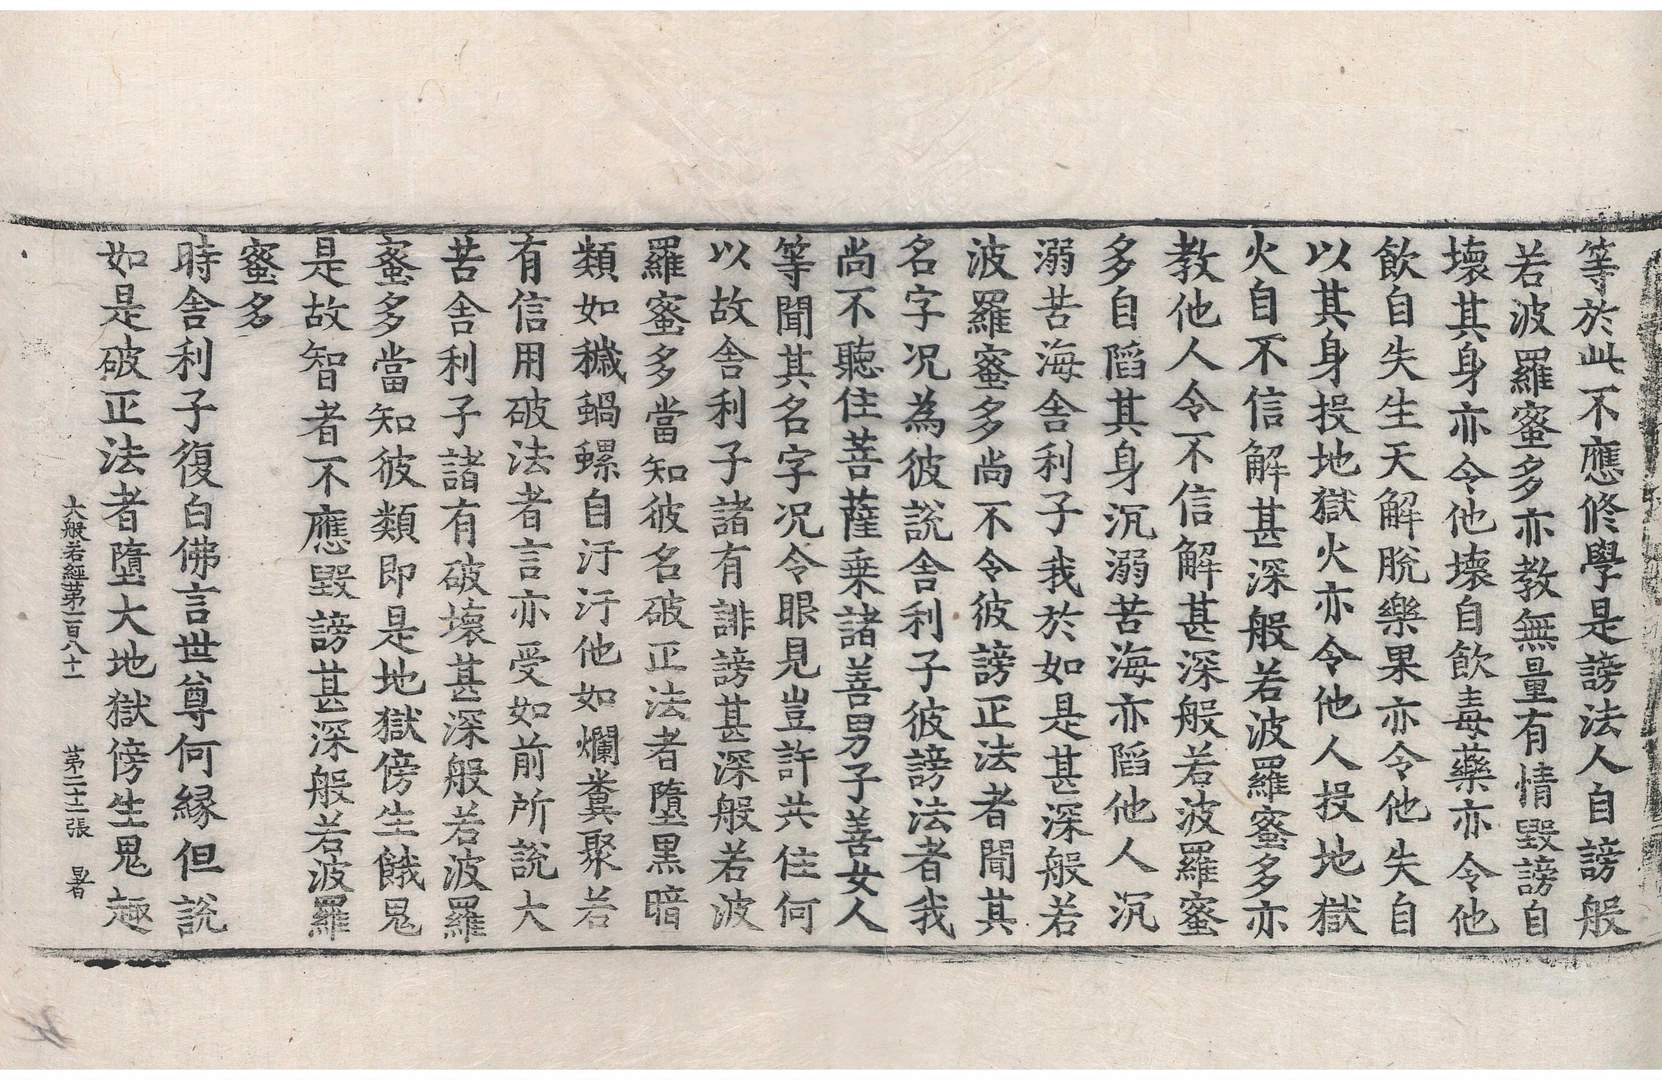 等於此不應修學是謗法人自謗般
若波羅蜜多亦教無量有情毀謗自
壞其身亦令他壞自飲毒藥亦令他
飲自失生天解脫樂果亦令他失自
以其身投地獄火亦令他人投地獄
火自不信解甚深般若波羅蜜多亦
教他人令不信解甚深般若波羅蜜
多自䧟其身沉溺苦海亦䧟他人沉
溺苦海舍利子我於如是甚深般若
波羅蜜多尚不令彼謗正法者聞其
名字况為彼說舍利子彼謗法者我
尚不聽住菩薩乗諸善男子善女人
等聞其名字况令眼見豈許共住何
以故舍利子諸有誹謗甚深般若波
羅蜜多當知彼名破正法者墮黒暗
類如穢蝸螺自汙汙他如爛糞聚若
有信用破法者言亦受如前所說大
苦舍利子諸有破壞甚深般若波羅
蜜多當知彼類即是地獄傍生餓鬼
是故智者不應毀謗甚深般若波羅
蜜多
時舍利子復白佛言世尊何縁但說
如是破正法者墮大地獄傍生鬼趣
大般若經第一百八十一 第二十二張 暑